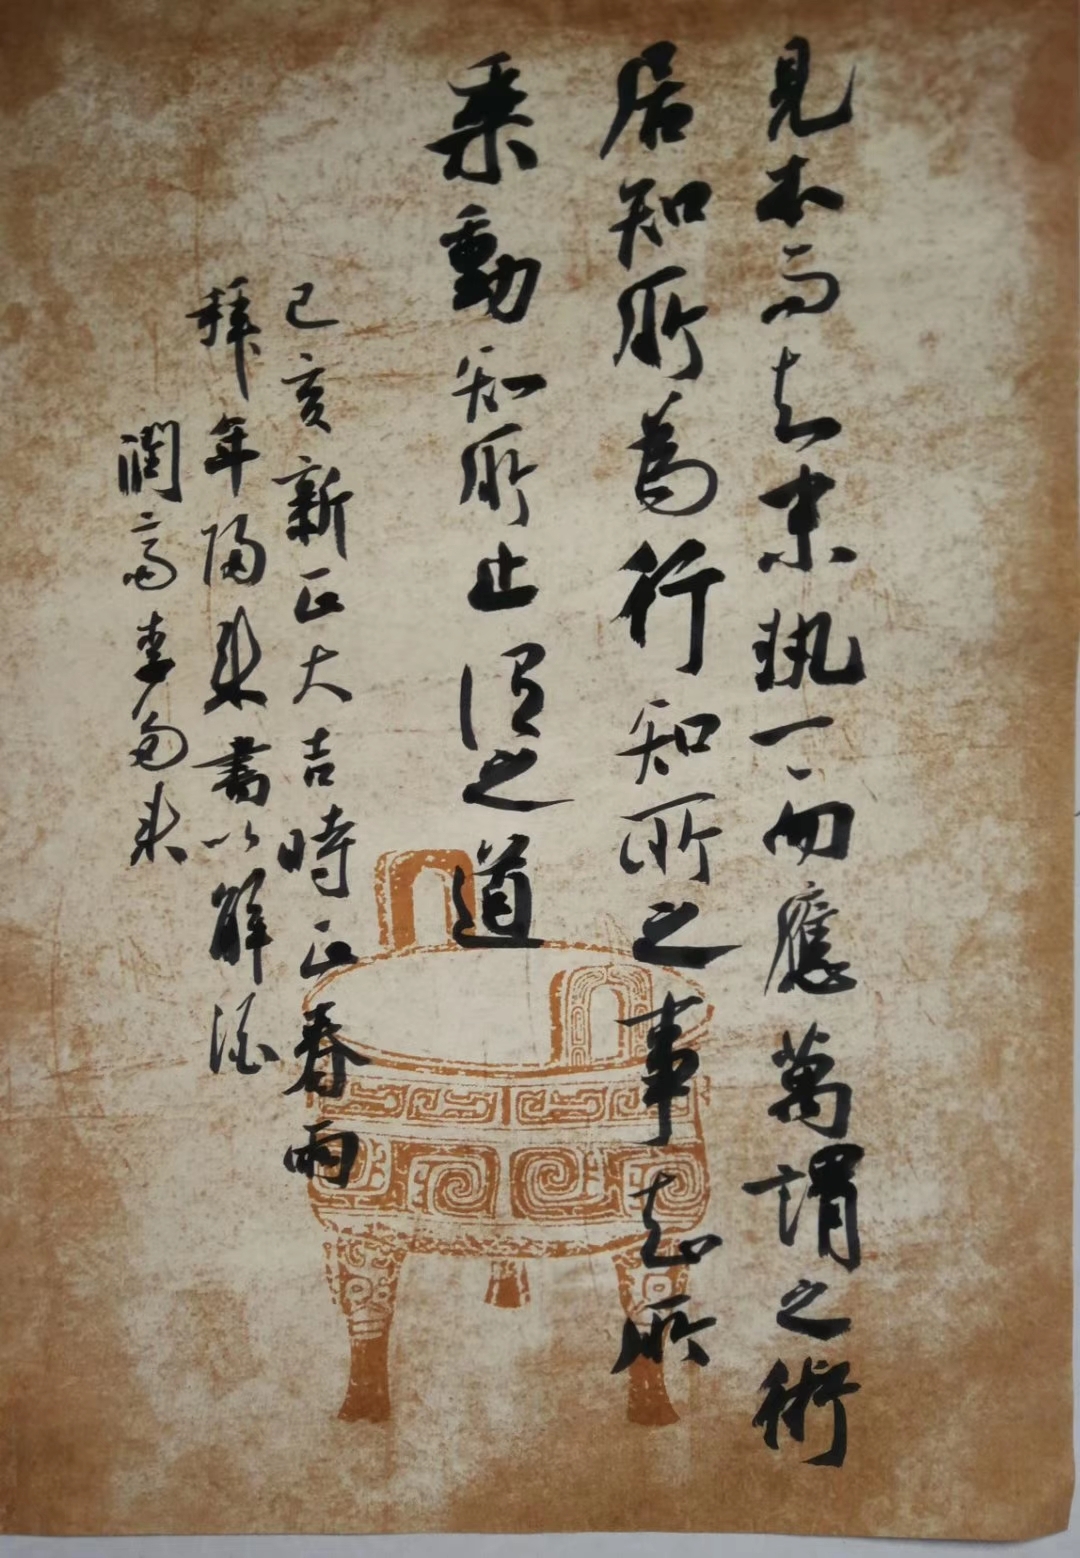 見本而知末執一而應萬謂之術
居知所為行知所之事知所
乘動知所止謂之道
己亥新正大吉時正春雨
拜年歸來書以解酒
潤李來